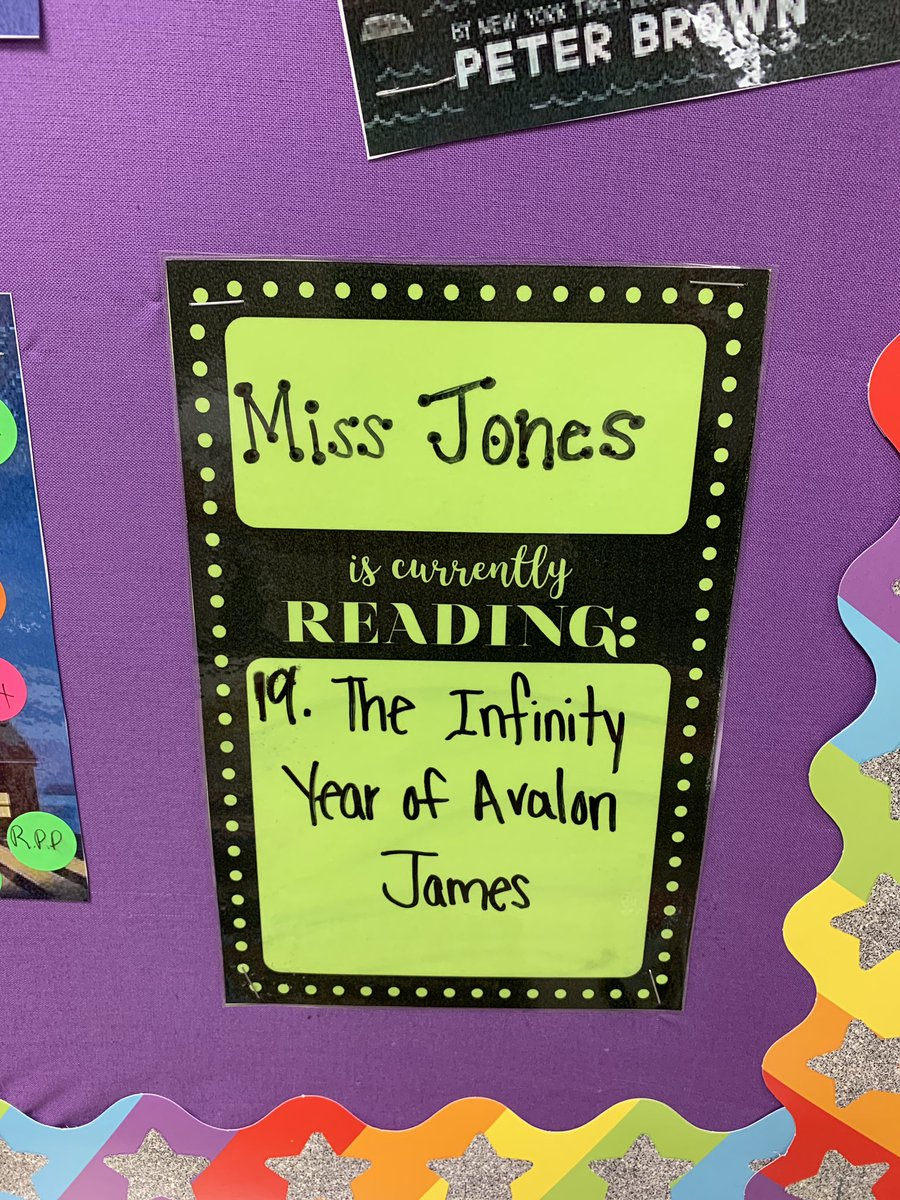 BY NEW YORK TIMES
PETER BROWN
Miss Jones
is currently
READING:
19. The Infinity
Year of Avalon
James
R.P.P